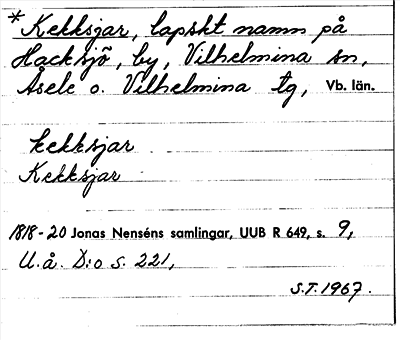 *Kekksjar, lapskt namn på
Hacksjö, by, Vilhelmina sn,
Åsele o. Vilhelmina tg, Vb. län.
kekksjar
Kekksjar
1818-20 Jonas Nenséns samlingar, UUB R 649, s. 9,
U.å. D:o s. 221,
S.T. 1967.